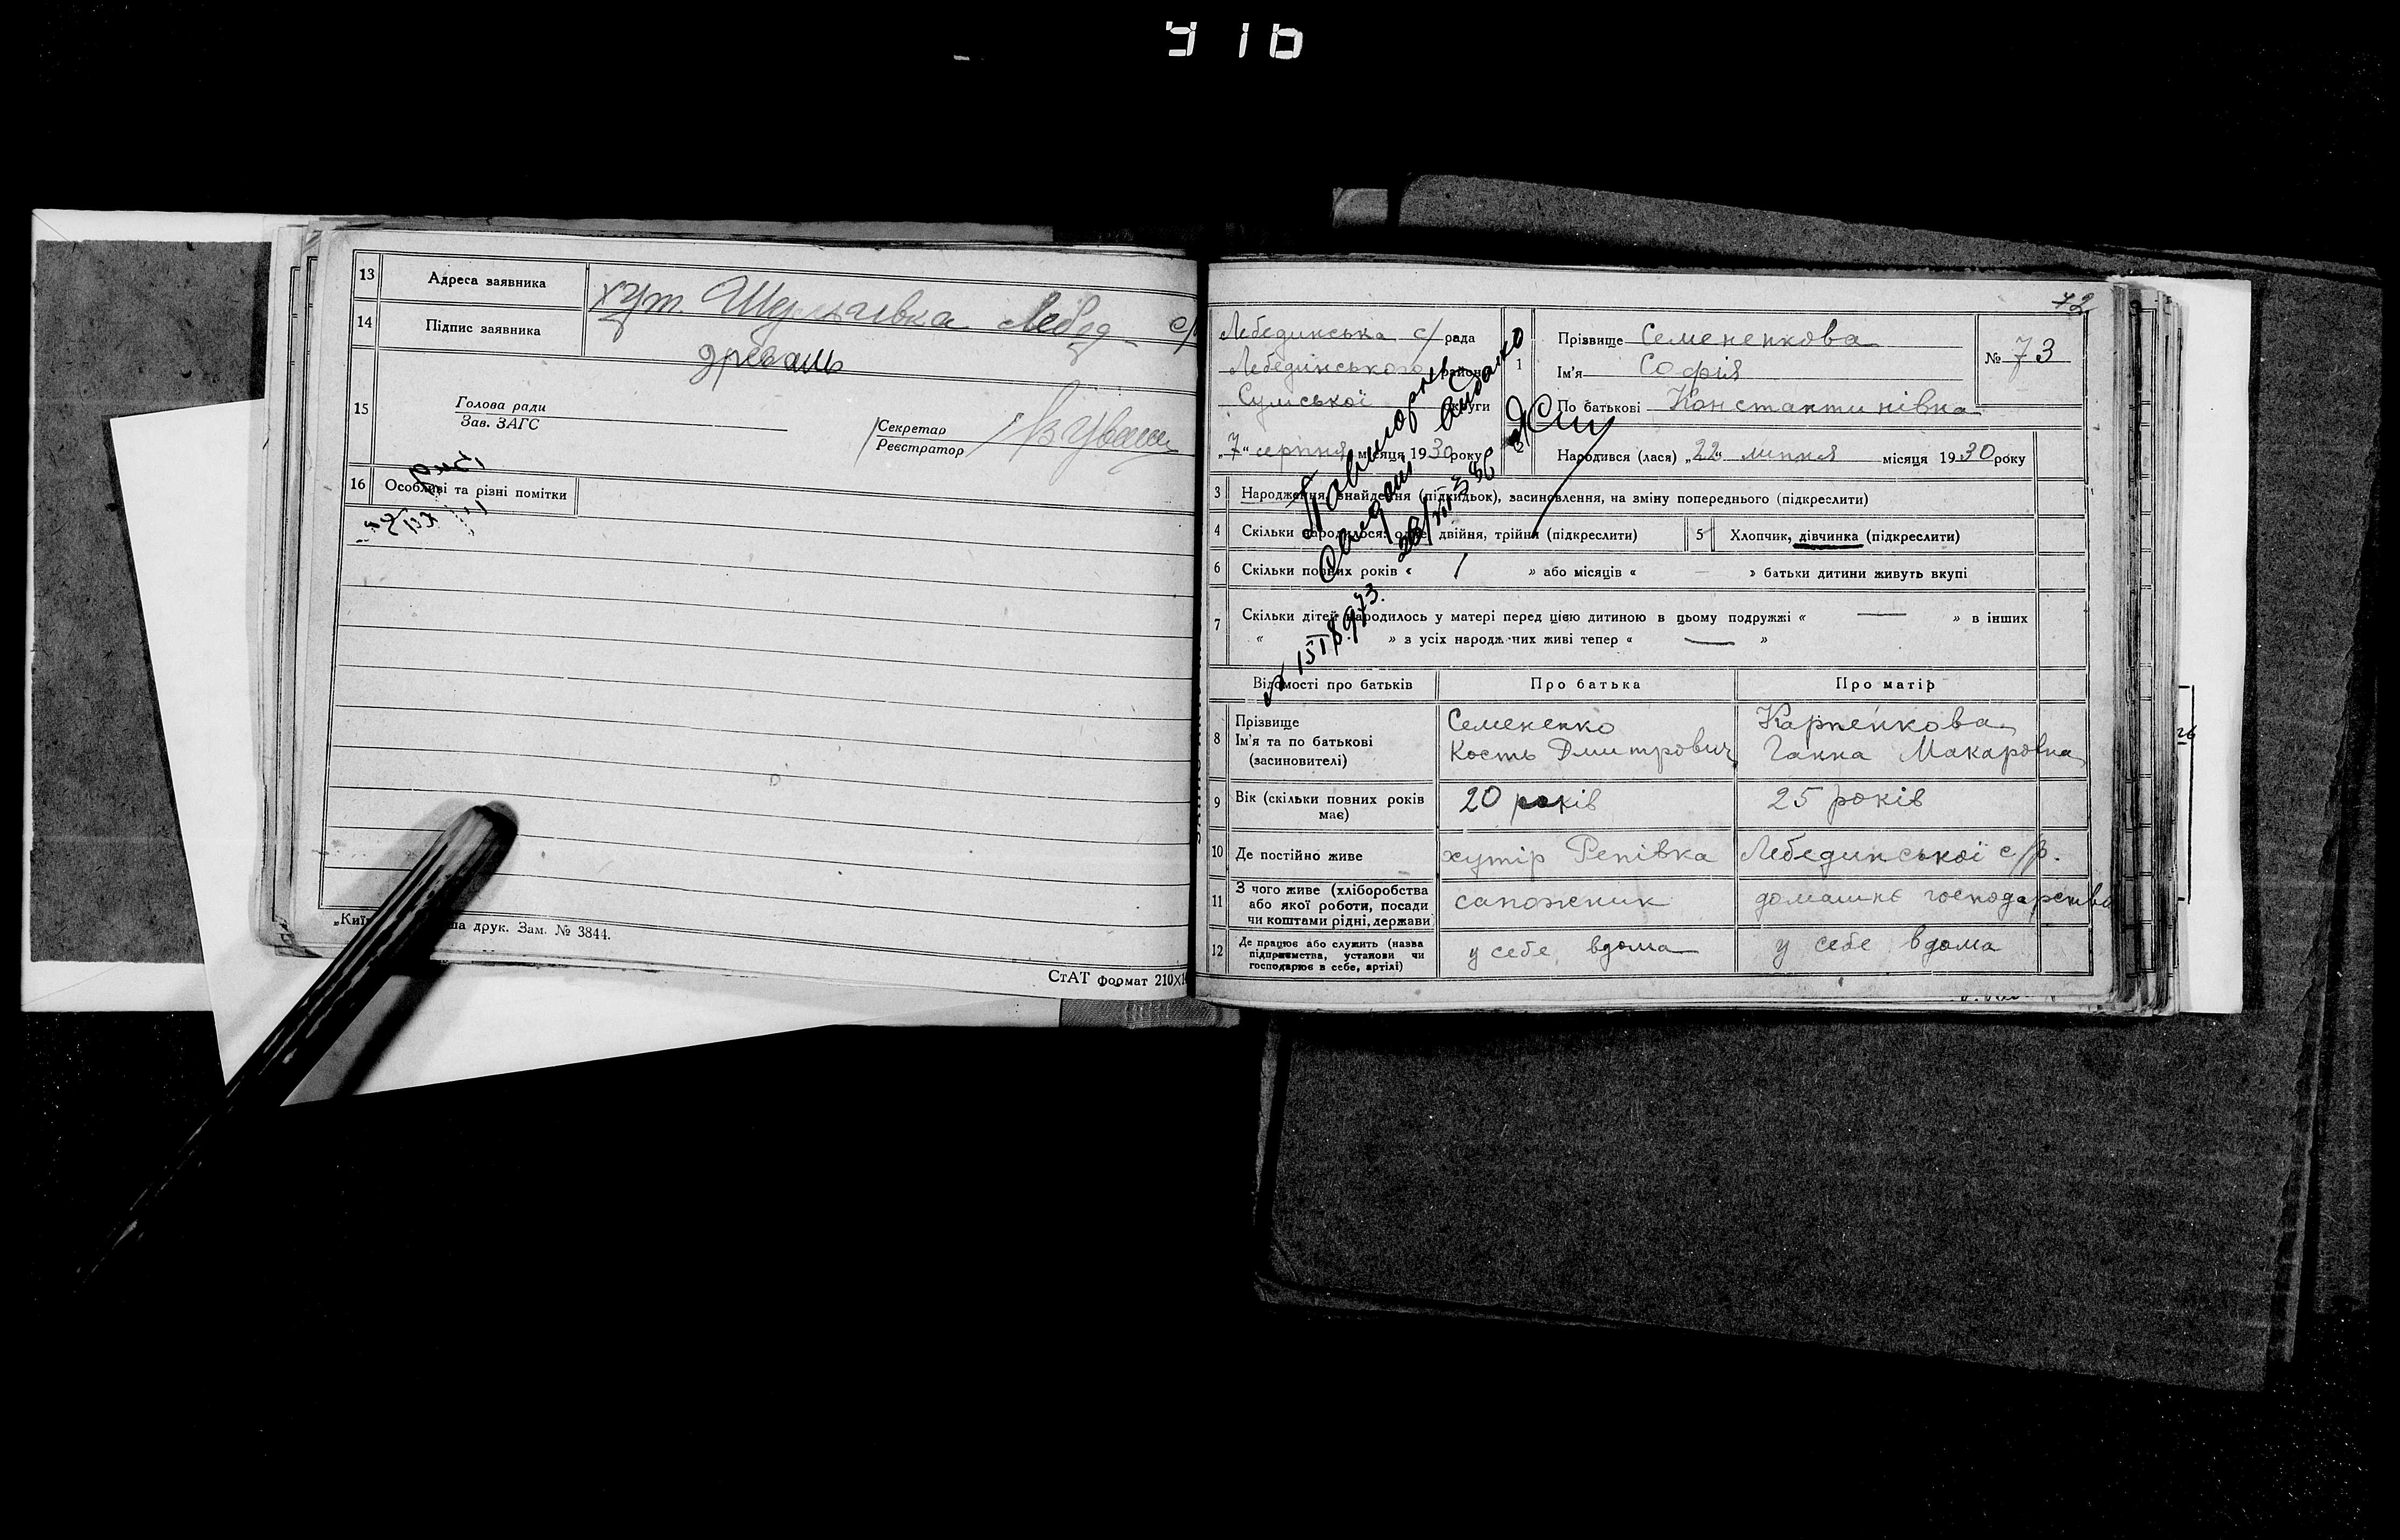 13 Адреса заявника хут. Лебед с/
14 Підпис заявника
15 Голова ради
Зав. ЗАГС
Секретар
Реєстратор
16 Особливі та різні помітки
друк. Зам. № 3844.
СтАТ формат 210×1
72
Лебединська с/ рада
Лебединського району
Сумської округи
„7“ серпня місяця 1930 року
Повторне
28/VII 58
1 Прізвище Семененкова
Ім'я Софія
По батькові Константинівна
№ 73
Народився (лася) „22“ липня місяця 1930 року
3 Народження, знайдення (підкидьок), засиновлення, на зміну попереднього (підкреслити)
4 Скільки народилося: одне, двійня, трійня (підкреслити)
5 Хлопчик, дівчинка (підкреслити)
6 Скільки повних років « 1 » або місяців « — » батьки дитини живуть вкупі
7 Скільки дітей народилось у матері перед цією дитиною в цьому подружжі « — » в інших
« » з усіх народж них живі тепер « — »
Відомості про батьків Про батька Про матір
8 Прізвище Семененко Карпенкова
Ім'я та по батькові Кость Дмитрович Ганна Макаровна
(засиновителі)
9 Вік (скільки повних років має) 20 років 25 років
10 Де постійно живе хутір Репівка Лебединської с/р.
11 З чого живе (хліборобства сапожник домашнє господарство
або якої роботи, посади
чи коштами рідні, держави
12 Де працює або служить (назва у себе вдома у себе вдома
підприємства, установи чи
господарює в себе, артілі)